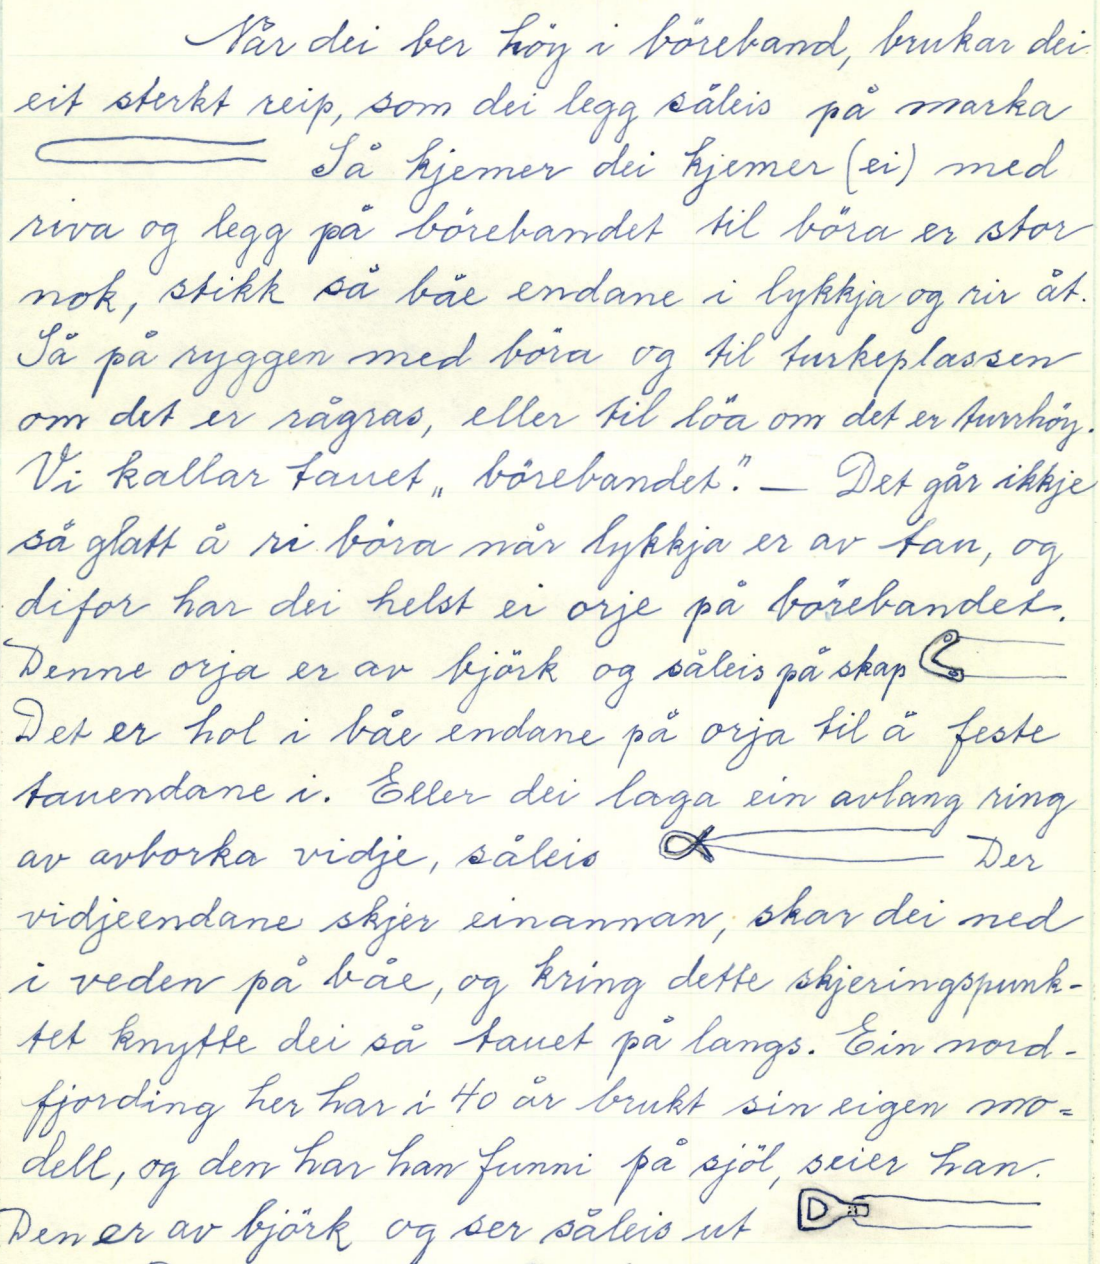 Når dei ber höy i böreband, brukar dei
eit sterkt reip, som dei legg såleis på marka
Så kjemer dei kjemer (ei) med
riva og legg på börebandet til böra er stor
nok, stikk så båe endane i lykkja og rir åt.
Så på ryggen med böra og til turkeplassen
om det er rågras, eller til löa om det er turrhöy.
Vi kallar tauet „börebandet". — Det går ikkje
så glatt å ri böra når lykkja er av tau, og
difor har dei helst ei orje på börebandet.
Denne orja er av björk og såleis på skap
Det er hol i båe endane på orja til å feste
tauendane i. Eller dei laga ein avlang ring
av avborka vidje, såleis Der
vidjeendane skjer einannan, skar dei ned
i veden på båe, og kring dette skjeringspunk-
tet knytte dei så tauet på langs. Ein nord-
fjording her har i 40 år brukt sin eigen mo=
dell, og den har han funni på sjöl, seier han.
Den er av björk og ser såleis ut